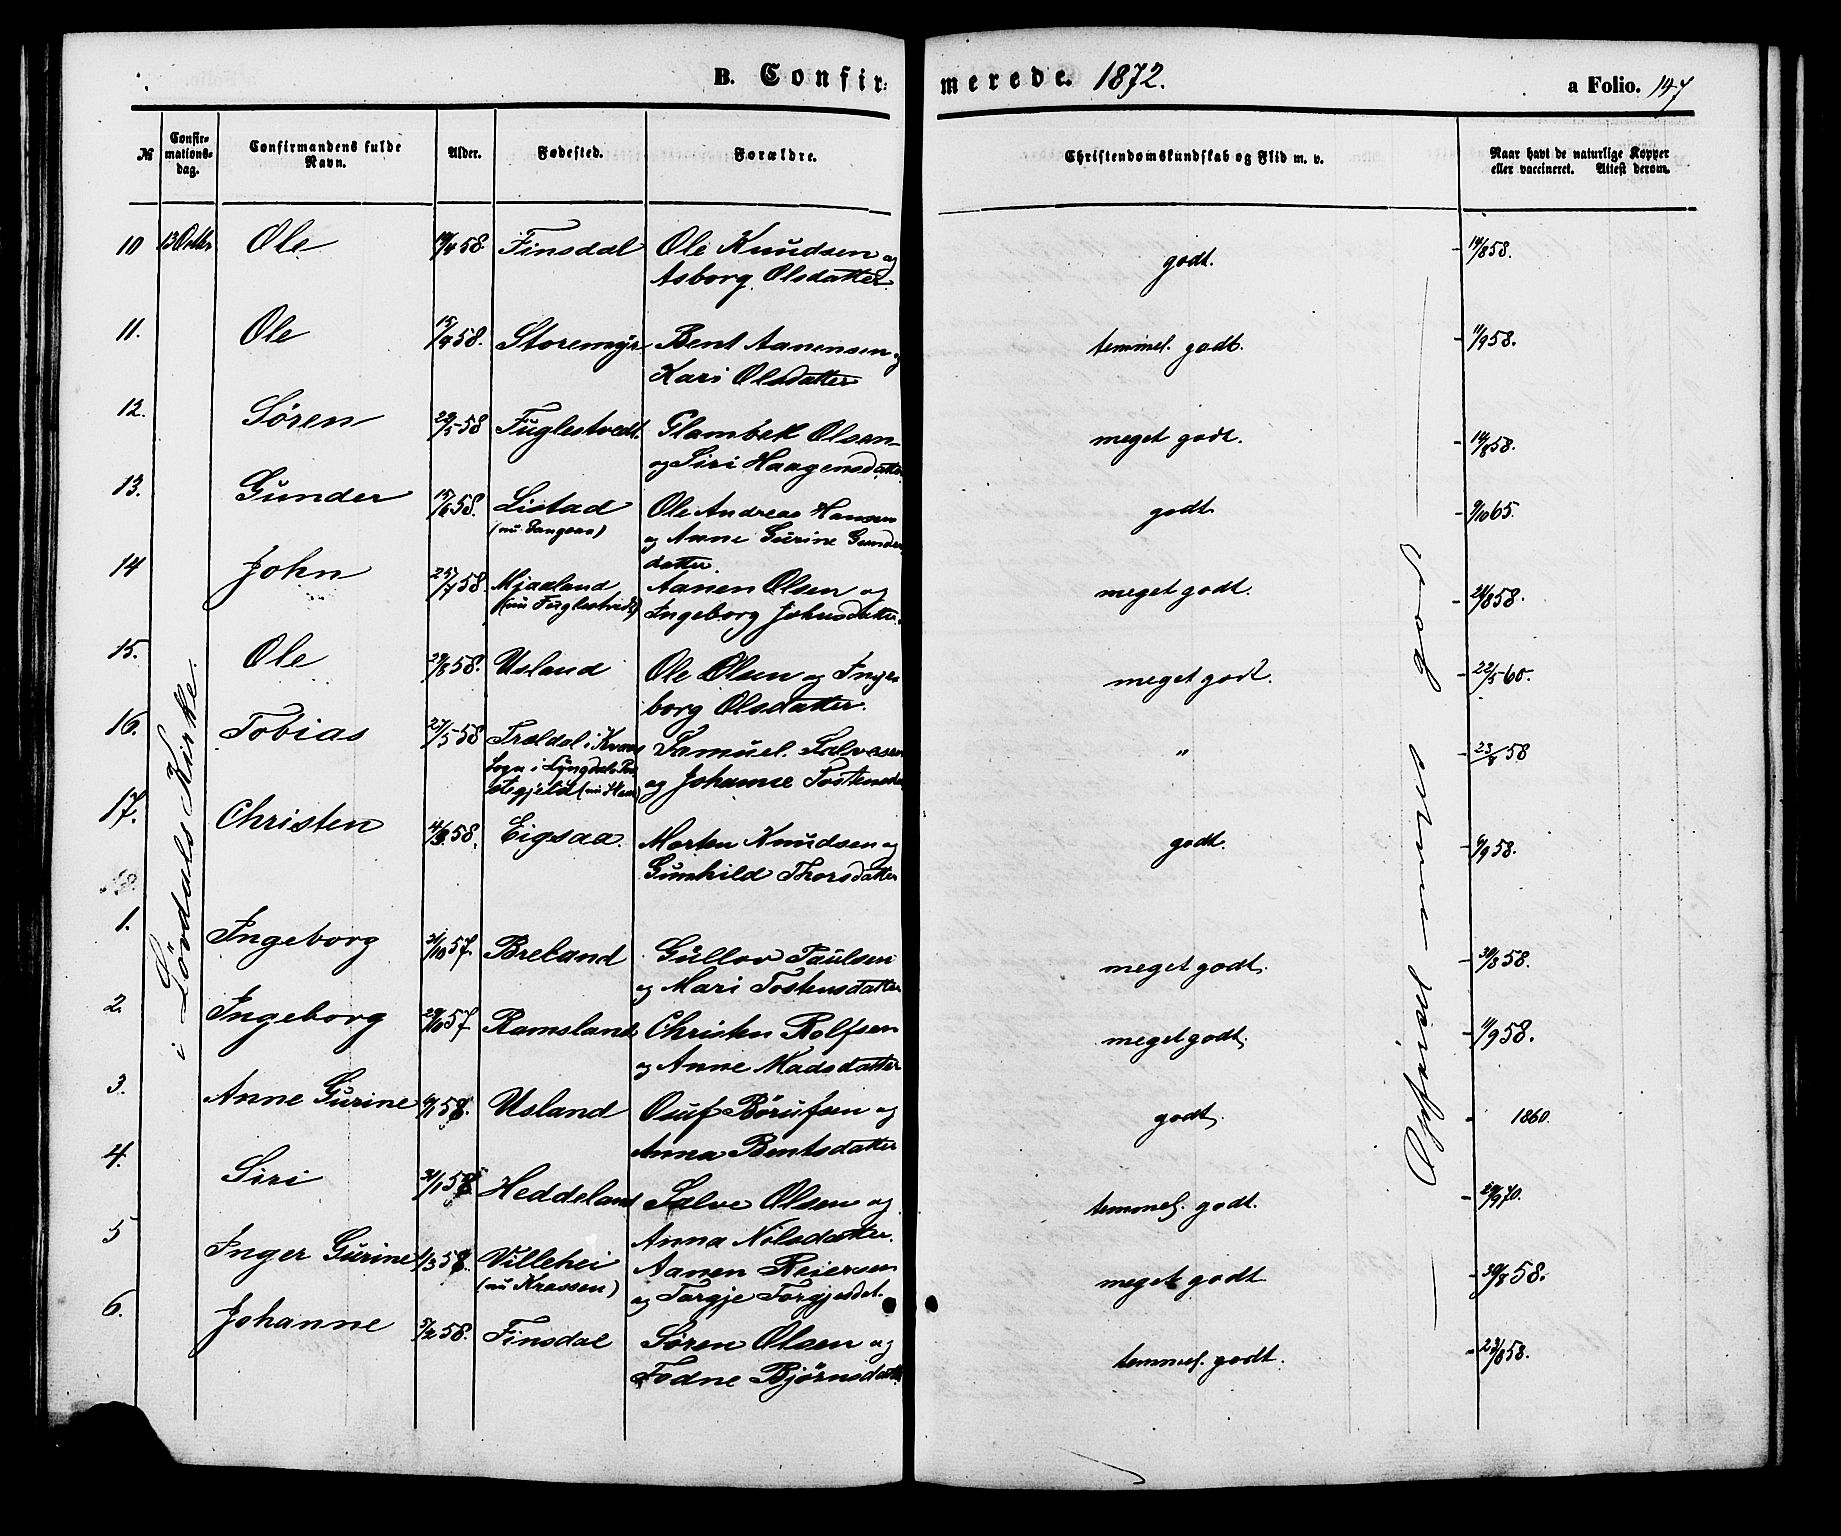 B. Confir-merede. 1872. a Folio. 147
№ Confirmationsdag. Confirmandens fulde Navn. Alder. Fødested. Forældre. Christendomskundskab og Flid m. v. Naar havt de naturlige Kopper eller vaccineret. Attest derom.
i Løvdals Kirke.
Opførsel meget god
10 13 Octbr Ole 58. Finsdal Ole Knudsen og godt. 14/8 58.
Asborg Olsdatter.
11. Ole 15/4 58. Storemyr Bent Aanensen og temmel. godt. 11/9 58.
Kari Olsdatter
12. Søren 29/5 58 Fuglestvedt. Glambek Olsen meget godt. 14/8 58.
og Siri Haagensdatter
13. Gunder 15/6 58. Listad Ole Andreas Hansen godt 9/10 65.
(nu Gangsaa) og Anne Gurine Gunders
datter.
14 John 25/7 58. Mjaaland Aanen Olsen og meget godt. 24/8 58.
(nu Fuglestvedt) Ingeborg Johnsdatter.
15. Ole 29/8 58. Usland Ole Olsen og Inge- meget godt. 22/5 60.
borg Olsdatter.
16. Tobias 27/5 58 Trældal i Kvaas Samuel Salvesen " 23/8 58
Sogn i Lyngdals Præ- og Johanne Tostensdat
stegjeld
17. Christen 58. Eigsaa. Morten Knudsen og godt. 6/9 58.
Gunhild Thorsdatter
1. Ingeborg 3/10 57. Breland Gullov Paulsen meget godt. 30/8 58.
og Mari Tostensdatter
2. Ingeborg 29/10 57. Ramsland Christen Rolfsen meget godt. 11/9 58.
og Anne Madsdatter
3. Anne Gurine 6/1 58. Usland Osuf Børufsen og godt. 1860.
Anna Bentsdatter
4. Siri 31/1 58 Heddeland Salve Olsen og temmel. godt. 29/9 70.
Anna Nilsdatter.
5 Inger Gurine 1/3 58. Villehei Aanen Reiersen meget godt 30/8 58.
(nu Krossen) og Targje Torgjesdat.
6. Johanne 5/2 58. Finsdal Søren Olsen og temmel. godt. 23/8 58.
Todne Bjørnsdatt